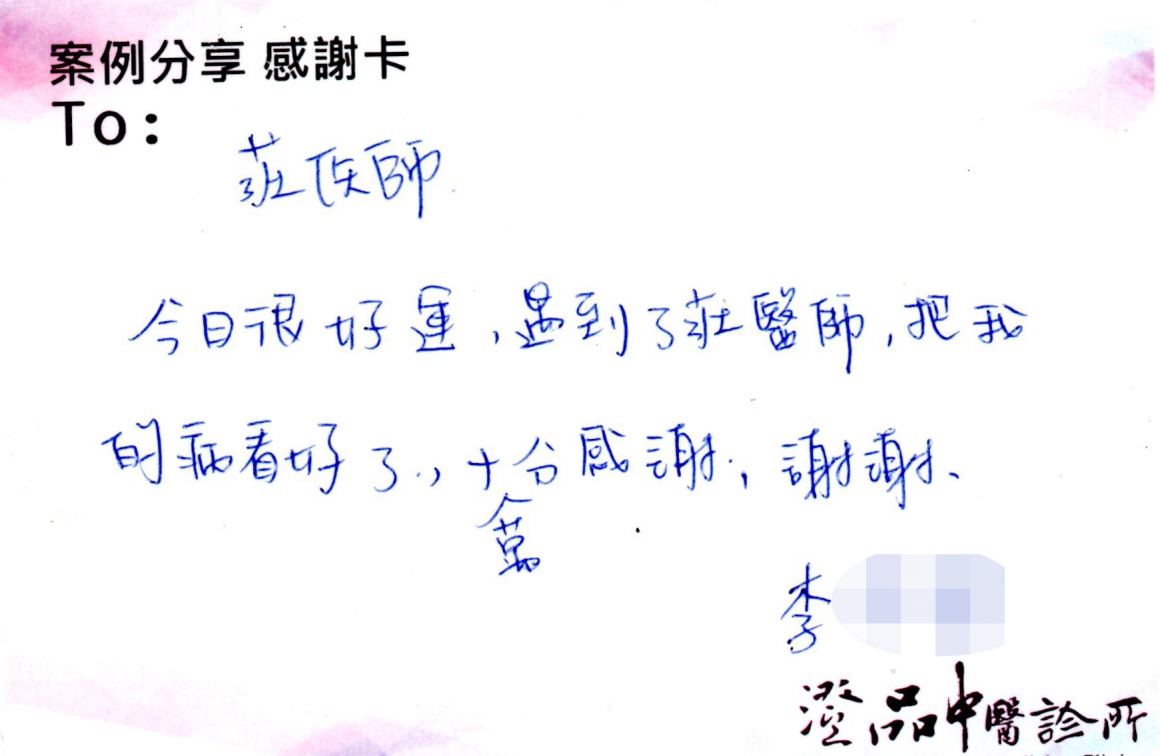 案例分享 感謝卡
To:
莊医師
今日很好運,遇到了莊醫師,把我
的病看好了,十分感謝,謝謝、
萬
李
澄品中醫診所